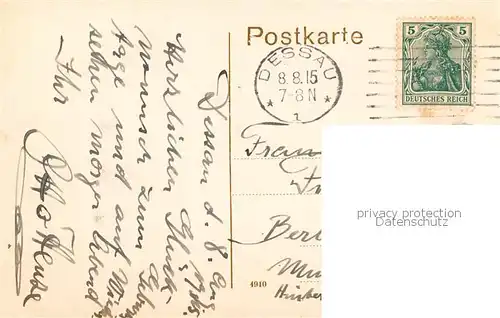 Postkarte
5 5
DEUTSCHES REICH
DESSAU
8.8.15
7-8N
* 1 *
Dessau d. 8. Aug
1915.
Herzlichen Glück-
wunsch zum Geb
tage und auf Wie
sehen morgen Abend
Ihr
Otto Heuse
Frau
Fr
Ber
Mu
4910
privacy protection
Datenschutz